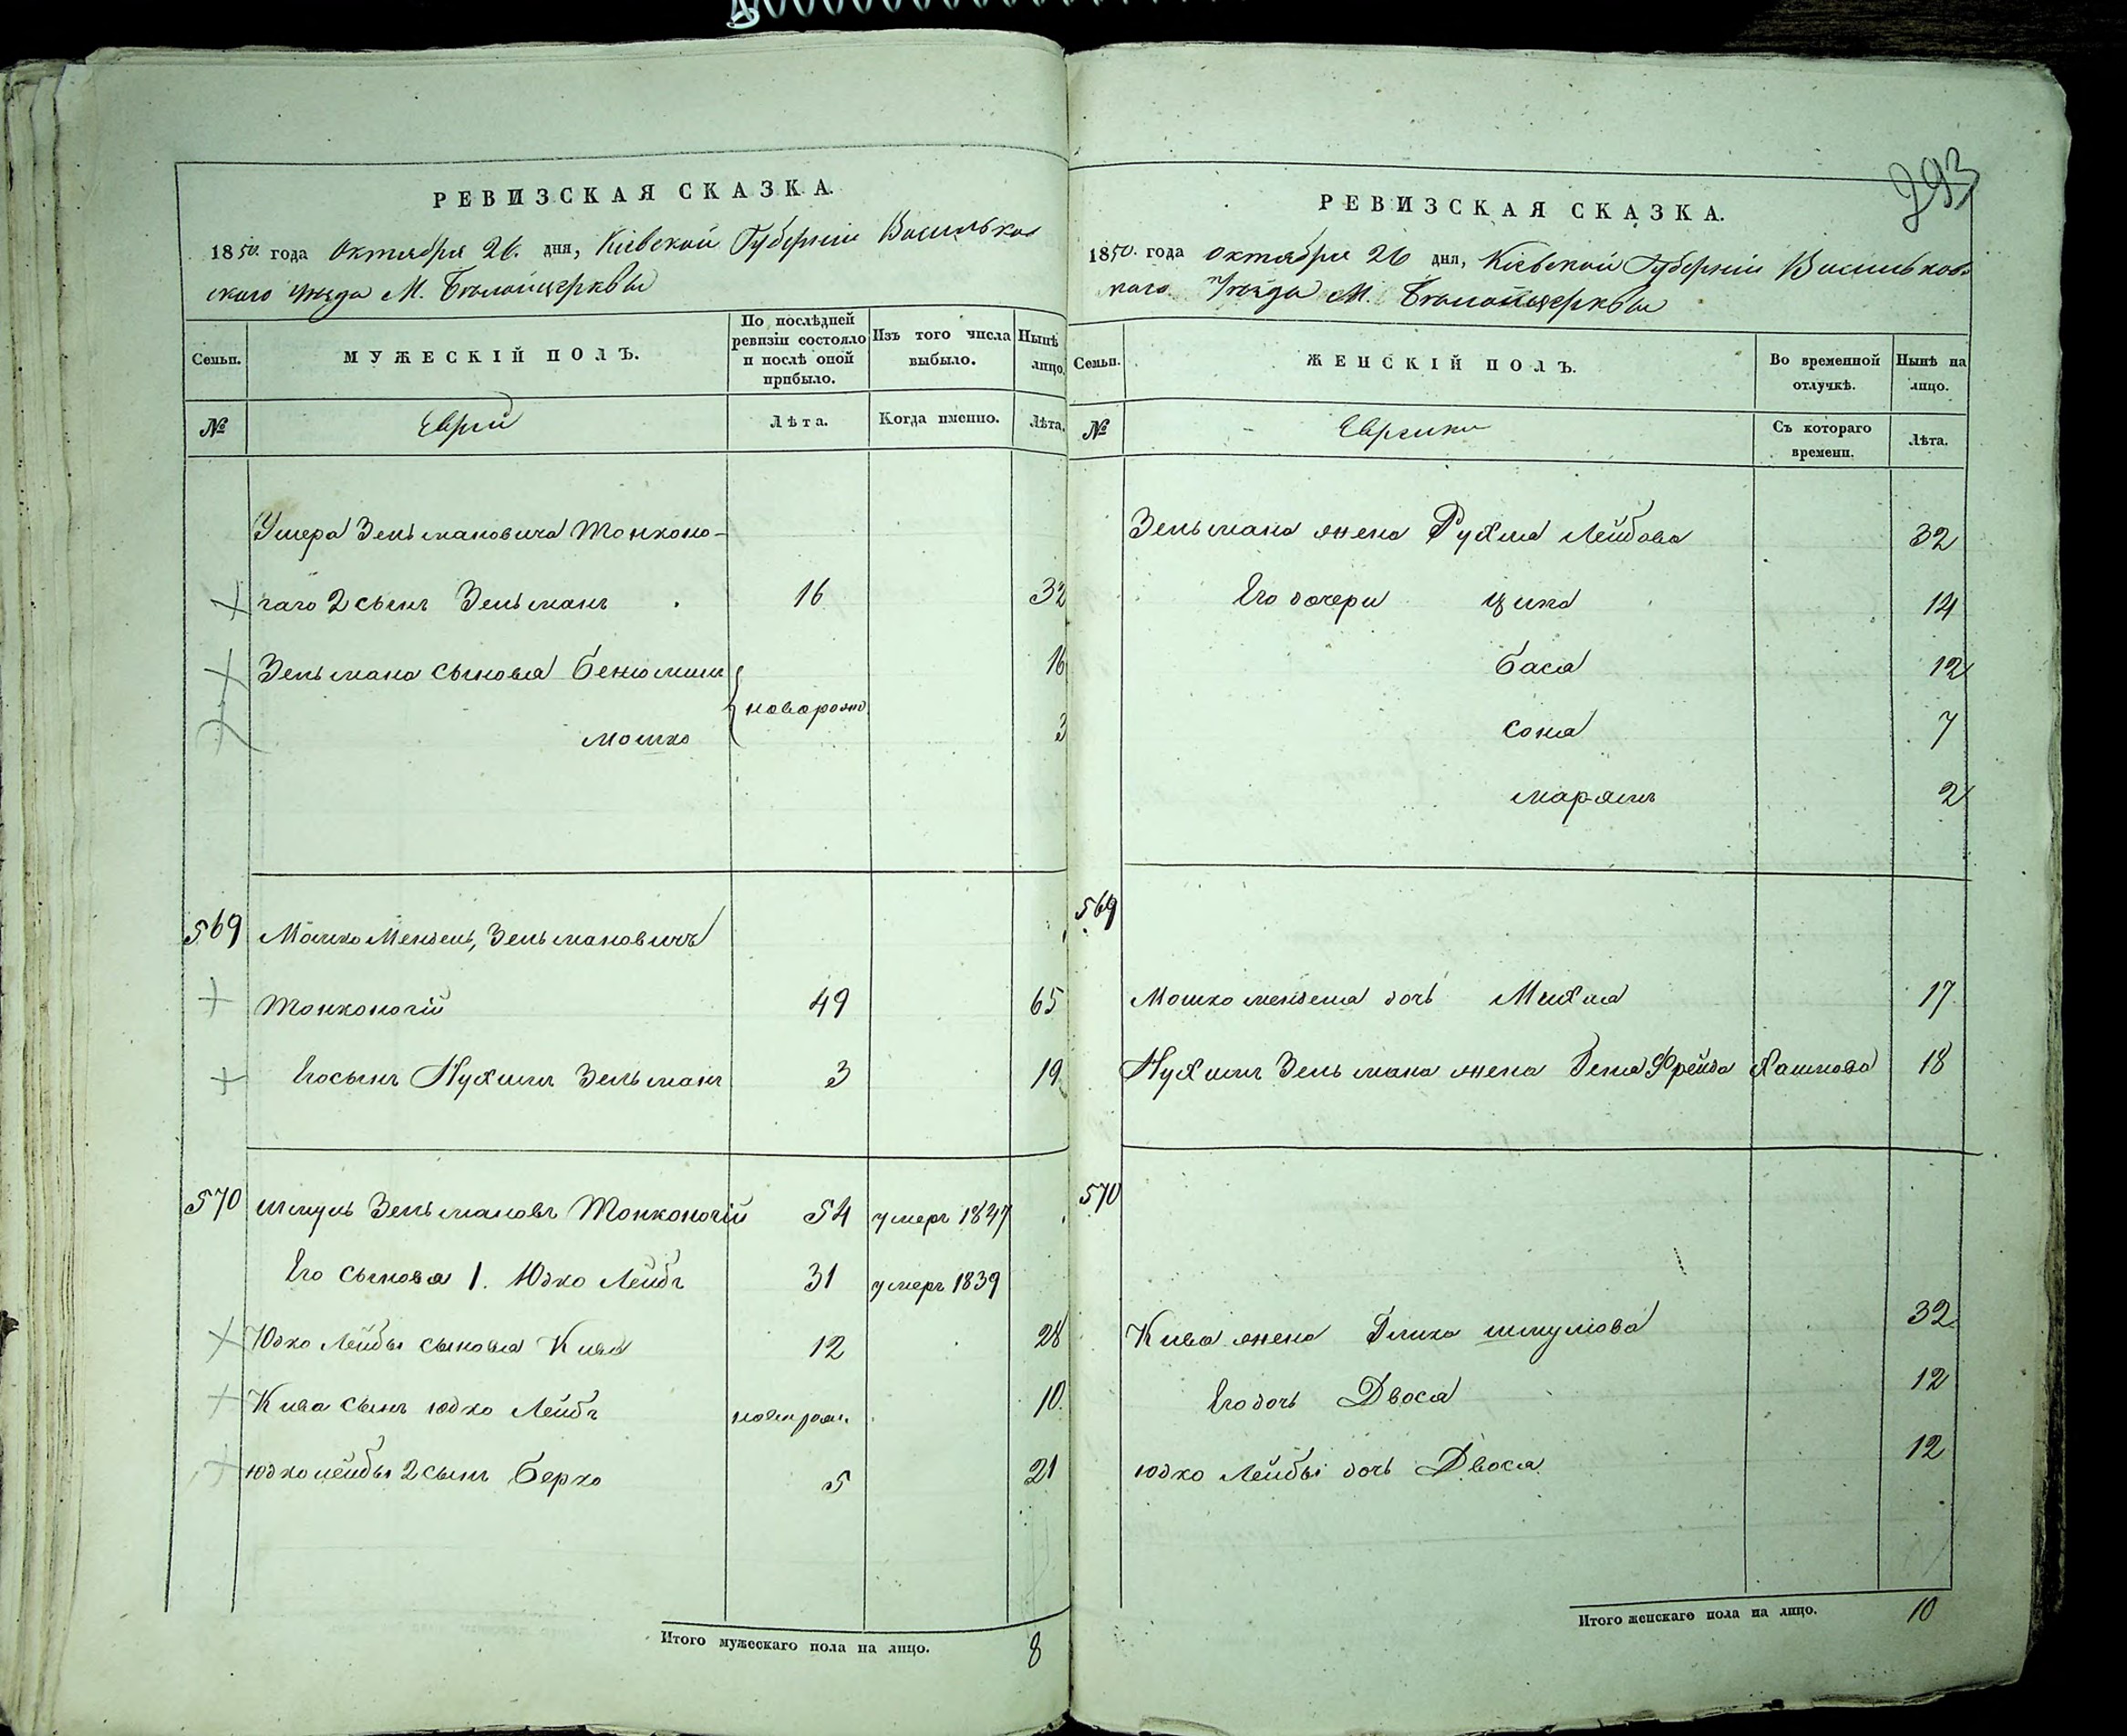 РЕВИЗСКАЯ СКАЗКА.
1850. года Октября 26. дня, Кіевской Губерніи Васильков
скаго уѣзда М. Бѣлойцеркви
Семьи.
МУЖЕСКІЙ ПОЛЪ.
По послѣдней ревизіи состояло и послѣ оной прибыло.
Изъ того числа выбыло.
Нынѣ лицо.
№
Евреи
Лѣта.
Когда именно.
Лѣта.
Ушера Зельмановича Тонконо-
гаго 2 сынъ Зельманъ 16 32
Зельмана сыновья Бенюминъ 16
новорожд.
Мошко 3
569 Мошко Мендель, Зельмановичъ
Тонконогій 49 65
Его сынъ Нухимъ Зельманъ 3 19
570 Шмуль Зельмановъ Тонконогій 54 умеръ 1847
Его сыновья 1. Юдко Лейбъ 31 умеръ 1839
Юдко Лейбы сыновья Кива 12 28
Кива сынъ Юдко Лейбъ 10
Юдко Лейбы 2 сынъ Берко 5 21
Итого мужескаго пола на лицо. 8
293
РЕВИЗСКАЯ СКАЗКА.
1850. года Октября 26 дня, Кіевской Губерніи Васильков
уѣзда М. Бѣлойцеркви
Семьи.
ЖЕНСКІЙ ПОЛЪ.
Во временной отлучкѣ.
Нынѣ на лицо.
№
Еврейки
Съ котораго времени.
Лѣта.
Зельмана жена Рухля Лейбова 32
Его дочери Ципа 14
Бася 12
Соня 7
Марьямъ 2
569
Мошко Менделя дочь Михля 17
Нухимъ Зельмана жена Геня Фрейда 18
570
Кива жена Шмулова 32
Его дочь Двося 12
Юдко Лейбы дочь Двося 12
Итого женскаго пола на лицо. 10